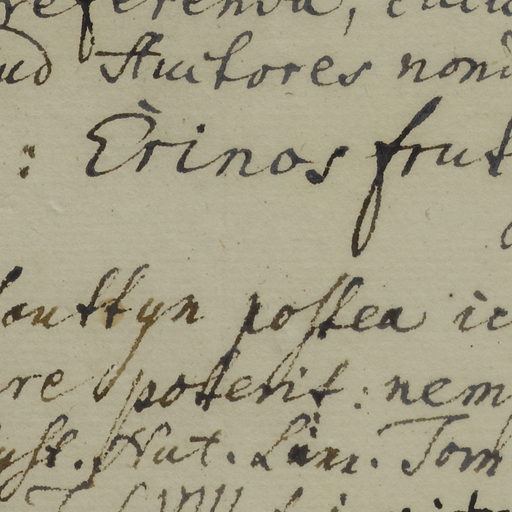 referenda,
ud Auctores nond
: Èrinos frut
lauttyn postea ic
re poterit: nem
yst. Nat. Linn. Tom